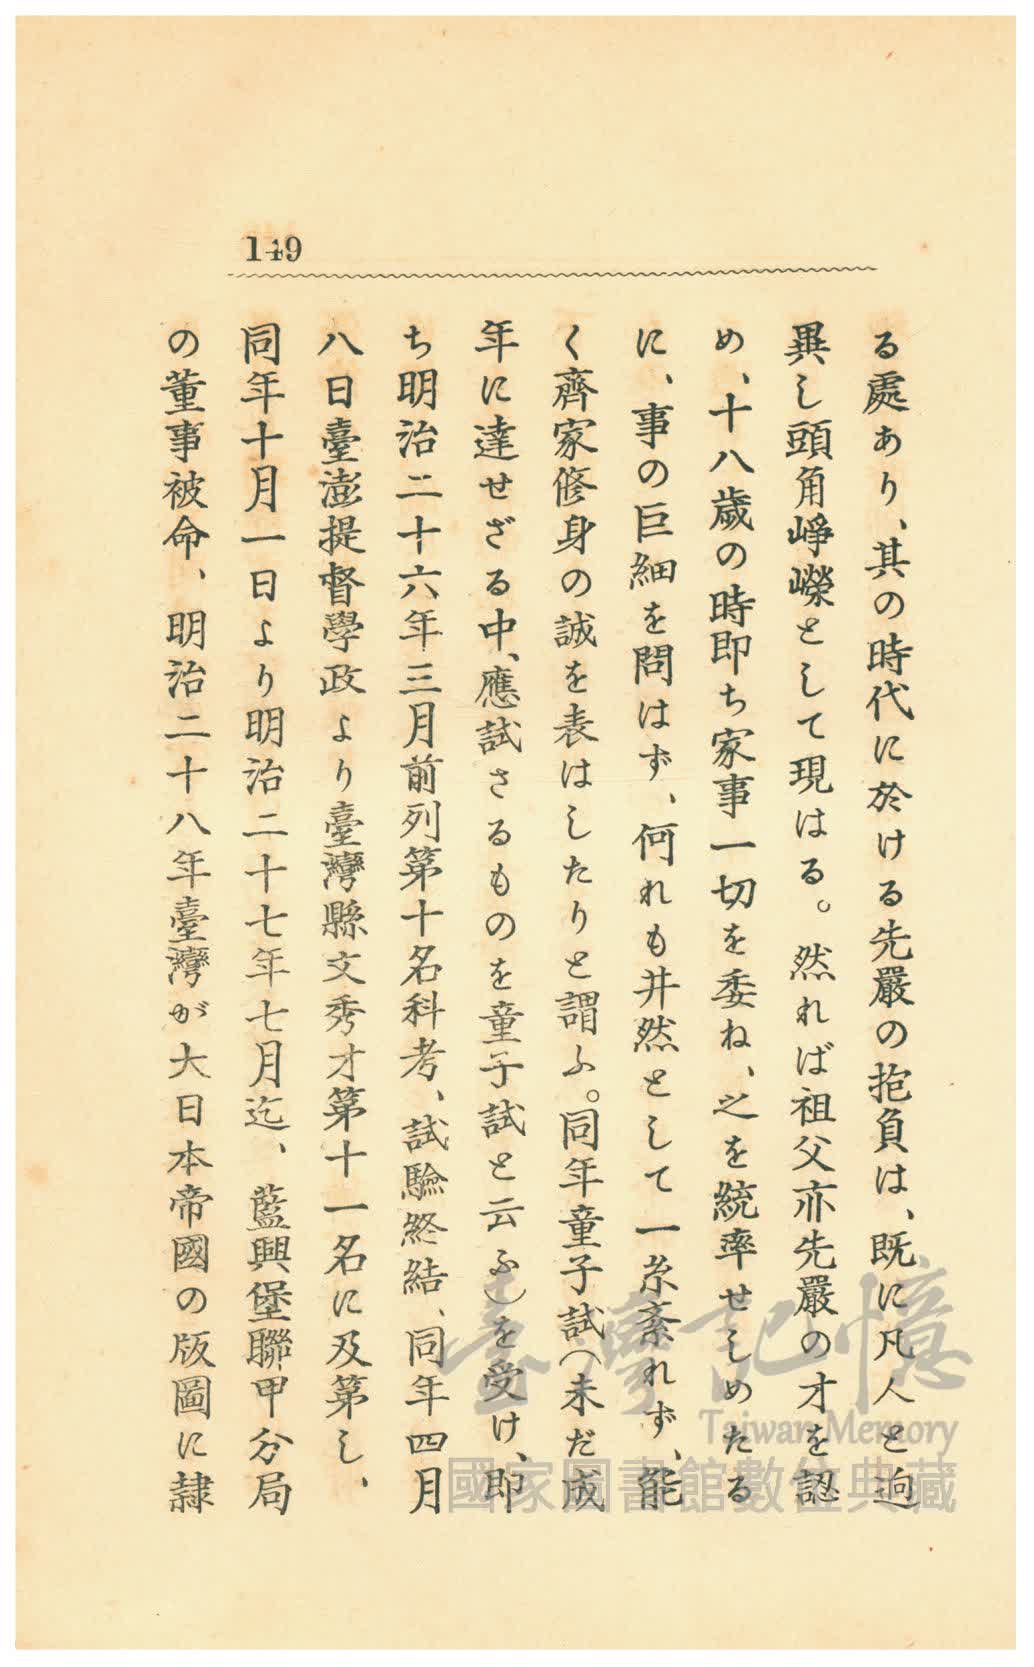 149
る處あり、其の時代に於ける先嚴の抱負は、既に凡人と逈
異し頭角崢嶸として現はる。然れば祖父亦先嚴の才を認
め、十八歳の時即ち家事一切を委ね、之を統率せしめたる
に、事の巨細を問はず、何れも井然として一糸紊れず、能
く齊家修身の誠を表はしたりと謂ふ。同年童子試(未だ成
年に達せざる中、應試さるものを童子試と云ふ)を受け、即
ち明治二十六年三月前列第十名科考、試驗終結、同年四月
八日臺澎提督學政より臺灣縣文秀才第十一名に及第し、
同年十月一日より明治二十七年七月迄、藍興堡聯甲分局
の董事被命、明治二十八年臺灣が大日本帝國の版圖に隷
臺灣記憶
Taiwan Memory
國家圖書館數位典藏